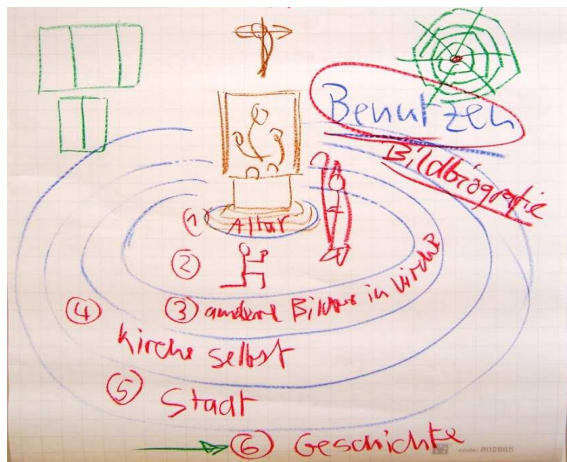 Benutzen
Bildbiografie
① Altar
②
③ andere Bilder in Kirche
④
Kirche selbst
⑤ Stadt
⑥ Geschichte
code: 202885